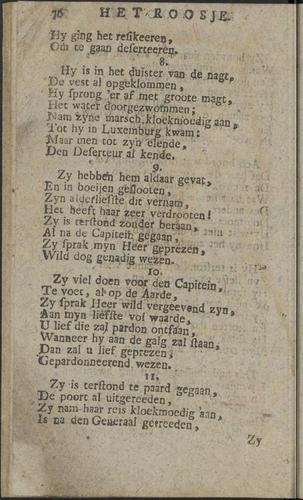 76 HET ROOSJE.
Hy ging het reſikeeren,
Om te gaan deſerteeren.
8.
Hy is in het duiſter van de nagt,
De veſt al opgeklommen,
Hy ſprong 'er af met groote magt,
Het water doorgezwommen;
Nam zyne marsch kloekmoedig aan,
Tot hy in Luxemburg kwam:
Maar men tot zyn elende,
Den Deſerteur al kende.
9.
Zy hebben hem aldaar gevat,
En in boeijen geſlooten,
Zyn alderliefſte dit vernam,
Het heeft haar zeer verdrooten!
Zy is terſtond zonder beraan,
Al na de Capitein gegaan,
Zy ſprak myn Heer geprezen,
Wild dog genadig wezen.
10.
Zy viel doen voor den Capitein,
Te voet, al op de Aarde,
Zy ſprak Heer wild vergeevend zyn,
Aan myn liefſte vol waarde,
U lief die zal pardon ontfaan,
Wanneer hy aan de galg zal ſtaan,
Dan zal u lief geprezen,
Gepardonneerend wezen.
11.
Zy is terſtond te paard gegaan,
De poort al uitgereeden,
Zy nam haar reis kloekmoedig aan,
Is na den Generaal getreeden,
Zy